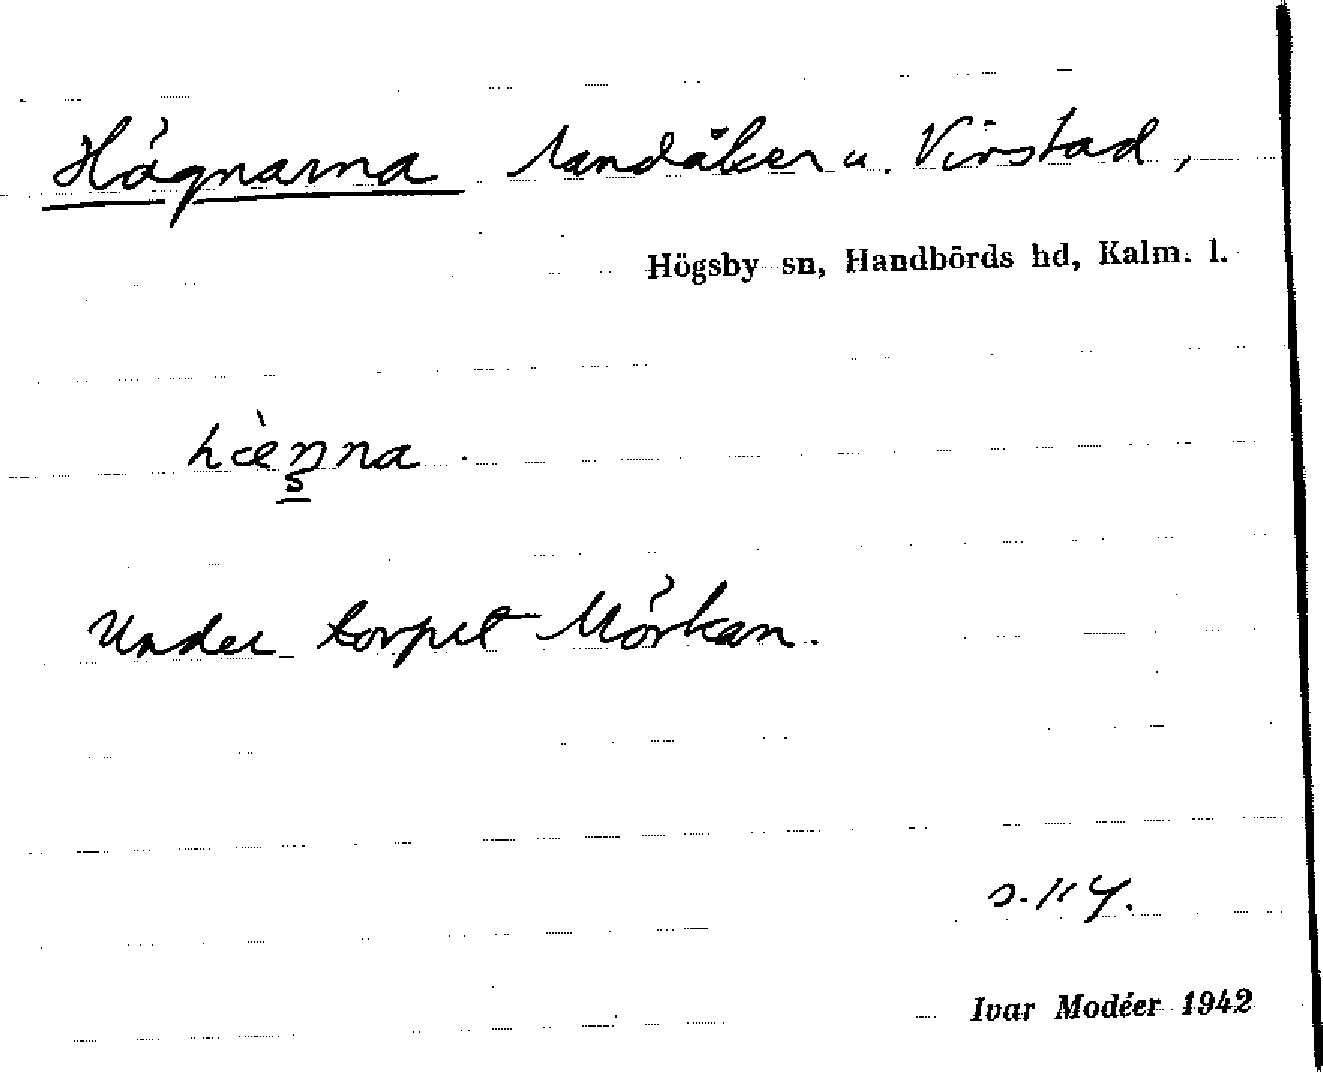 Högnarna Sandåker u. Virstad,
Högsby sn, Handbörds hd, Kalm. l.
Under torpet Mörkan.
s. 114.
Ivar Modéer 1942